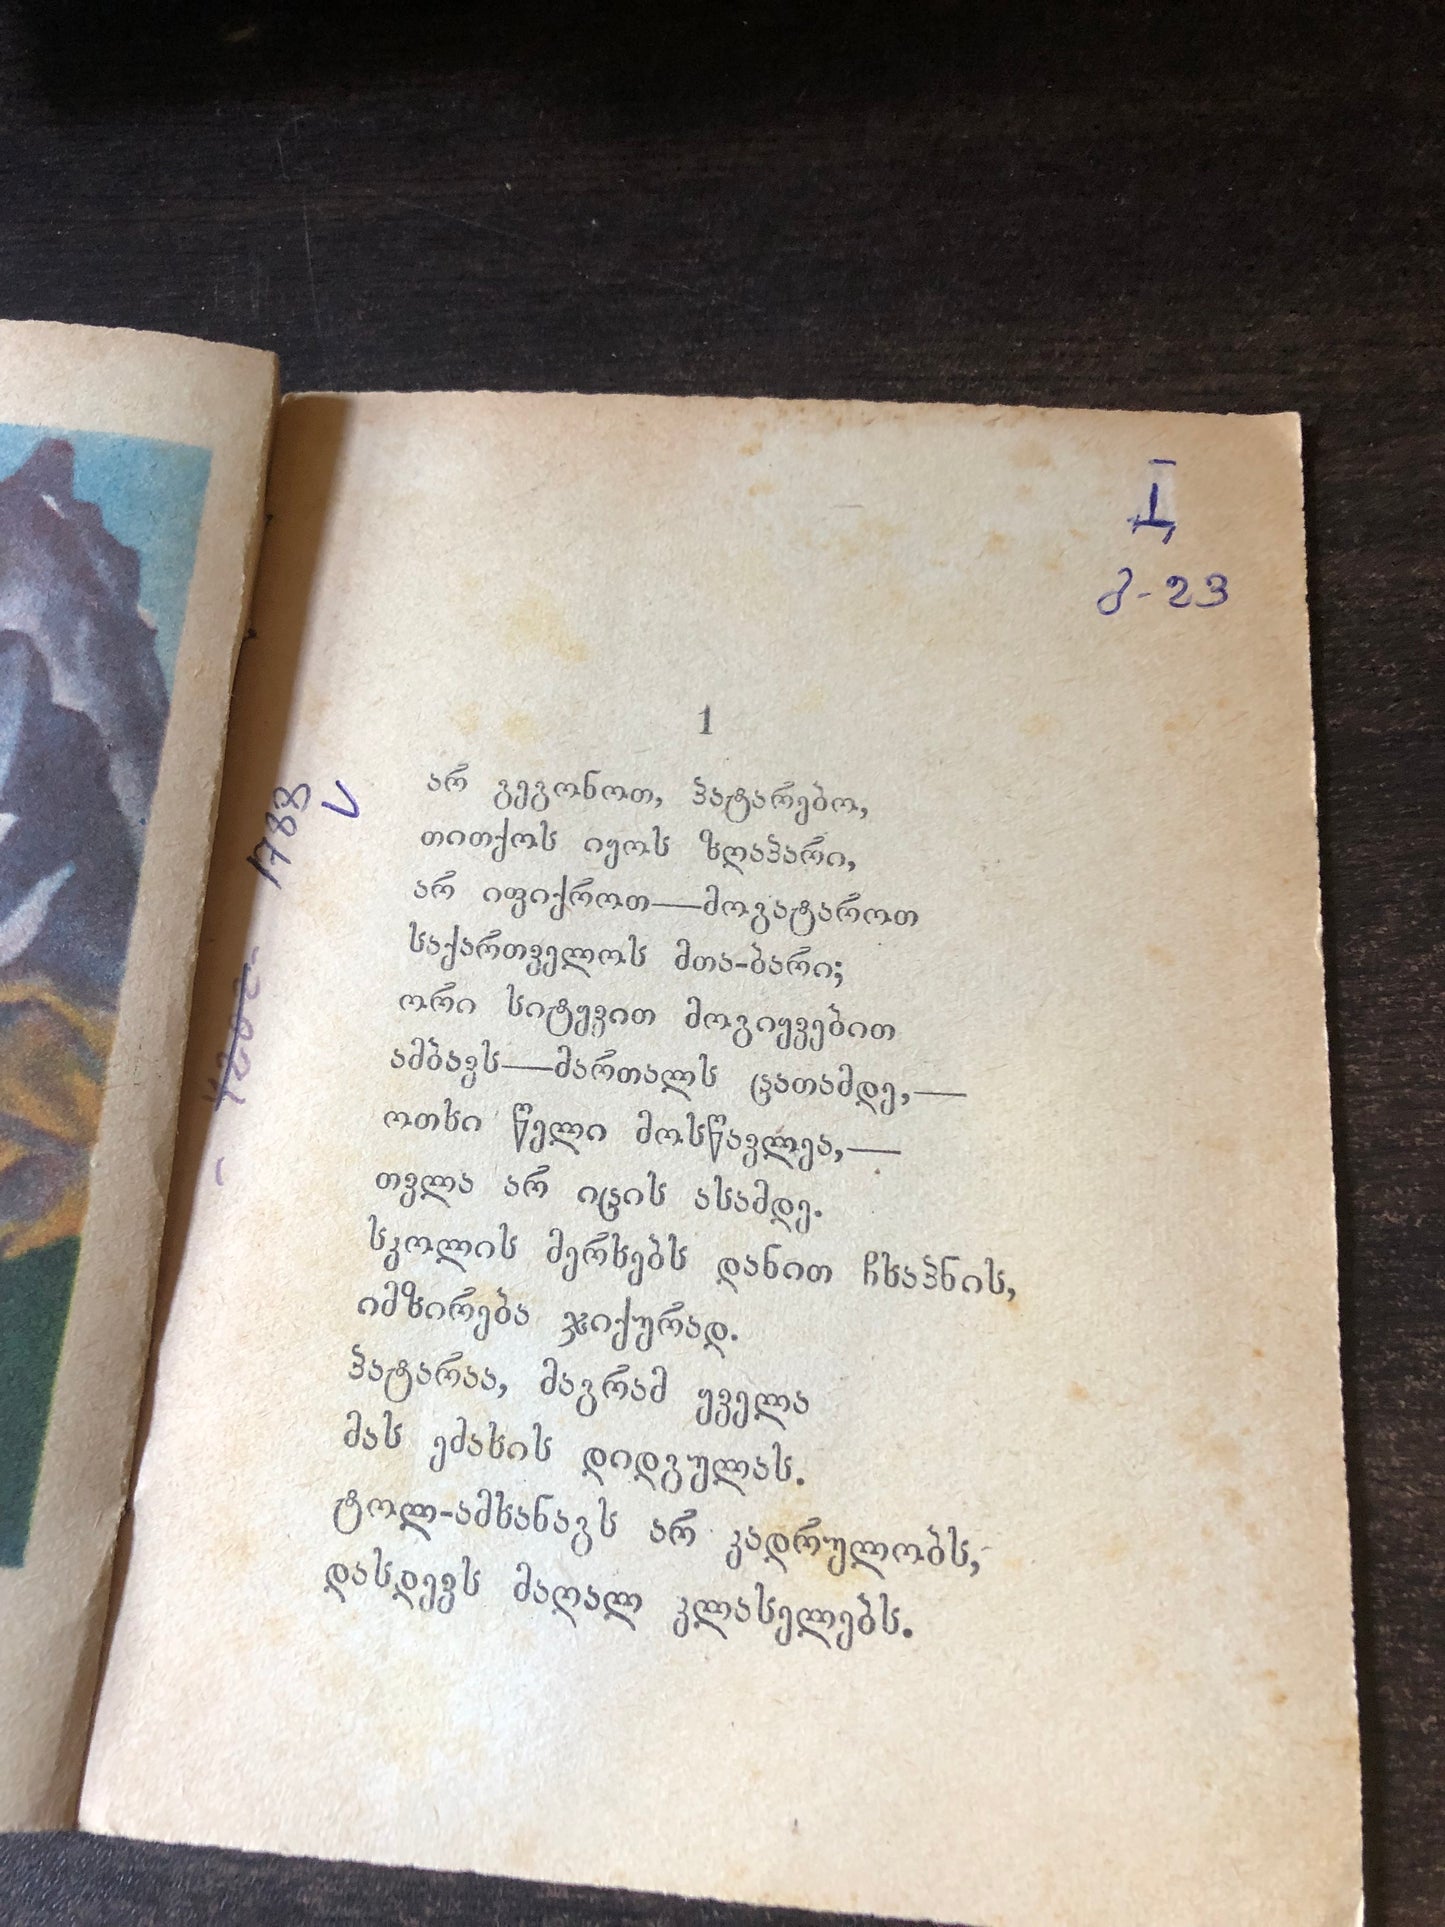 ბ-23
1788
1
არ გეგონოთ, პატარებო,
თითქოს იყოს ზღაპარი,
არ იფიქროთ—მოგატაროთ
საქართველოს მთა-ბარი;
ორი სიტყვით მოგიყვებით
ამბავს—მართალს ცათამდე,—
ოთხი წელი მოსწავლეა,—
თვლა არ იცის ასამდე.
სკოლის მერხებს დანით ჩხაპნის,
იმზირება ჯიქურად.
პატარაა, მაგრამ ყველა
მას ემახის დიდგულას.
ტოლ-ამხანაგს არ კადრულობს,
დასდევს მაღალ კლასელებს.